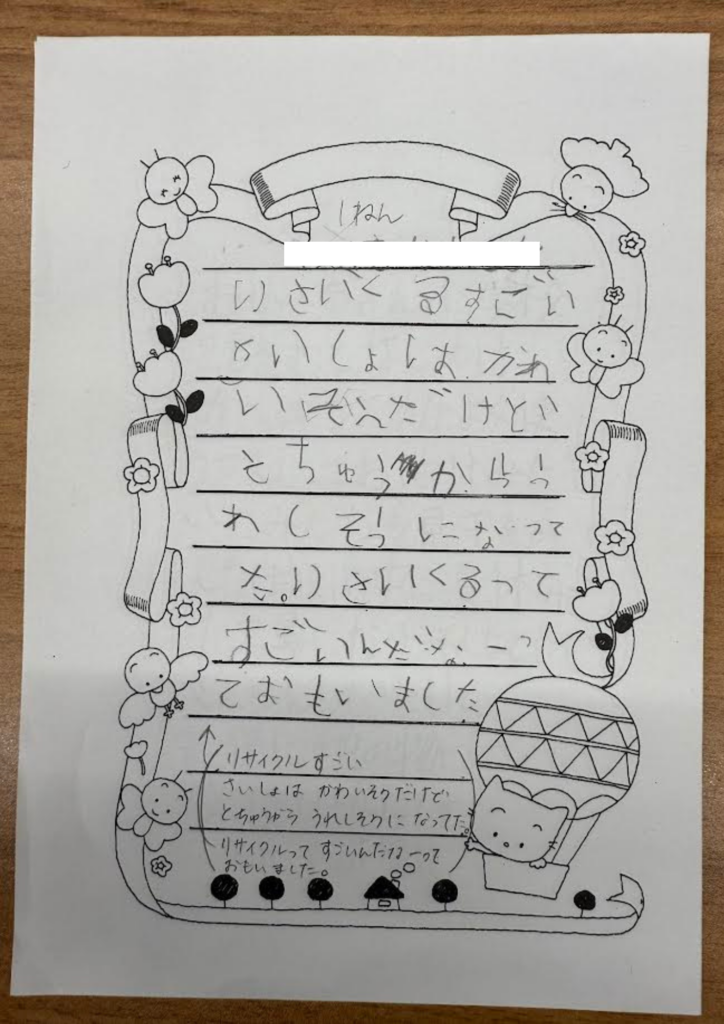 1ねん
りさいくるすごい
さいしょは かわ
いそんだけどい
とちゅうからう
れしそうになって
た。りさいくるって
すごいんだなーっ
ておもいました
リサイクルすごい
さいしょは かわいそうだけど
とちゅうから うれしそうに なってた。
リサイクルって すごいんだなーって
おもいました。